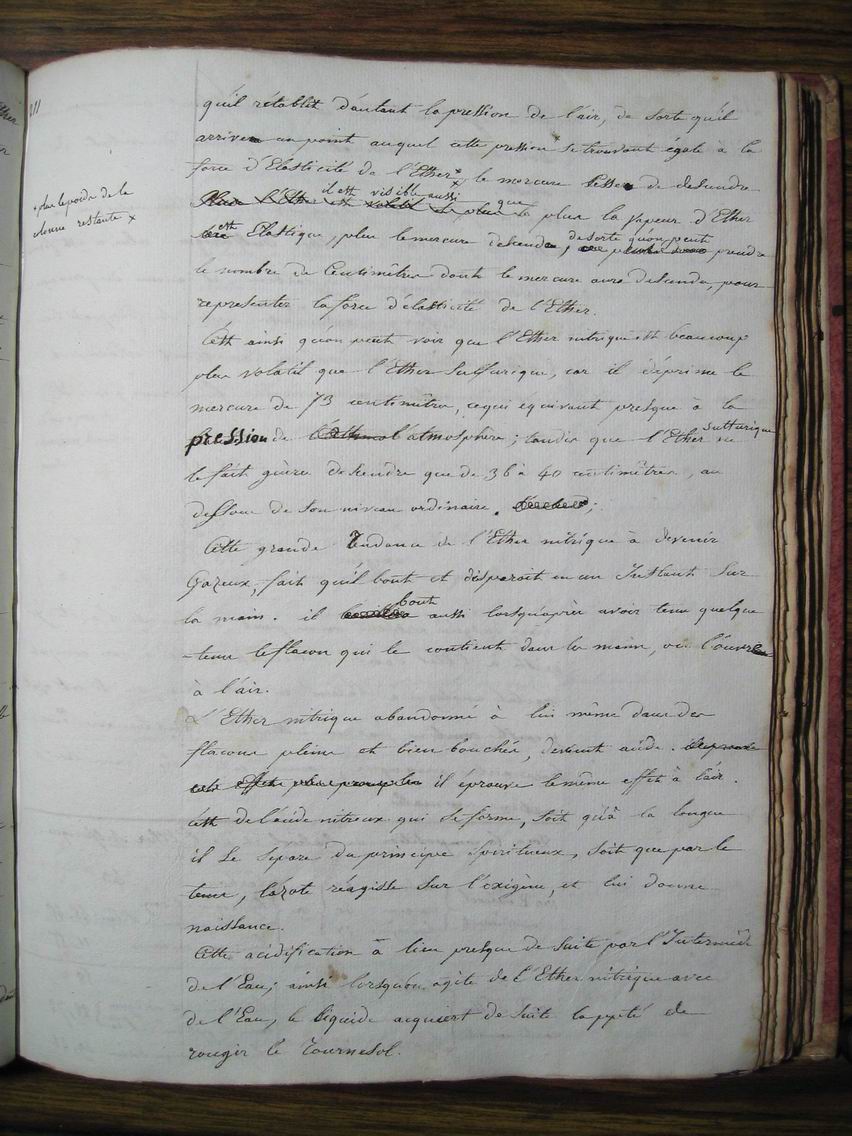 111
qu'il rétablit d'autant la pression de l'air, de sorte qu'il
arrive un point auquel cette pression se trouvant égale à la
force d'Elasticité de l'Ether x le mercure cesse de descendre
x plus le poids de la
colonne restante x
il est visible aussi que
plus la vapeur d'Ether
est Elastique, plus le mercure descend, de sorte qu'on peut prendre
le nombre de Centimètres dont le mercure aura descendu, pour
representer la force d'élasticité de l'Ether.
C'est ainsi qu'on peut voir que l'Ether nitrique est beaucoup
plus volatil que l'Ether Sulfurique, car il déprime le
mercure de 73 centimètres, ce qui équivaut presque à la
pression de l'atmosphère; tandis que l'Ether sulfurique ne
le fait guère descendre que de 36 à 40 centimètres, au
dessous de son niveau ordinaire.
Cette grande Tendance de l'Ether nitrique à devenir
Gazeux, fait qu'il bout et disparoit en un Instant sur
la main. il bout aussi lorsqu'après avoir tenu quelque
tems le flacon qui le contient dans la main, on l'ouvre
à l'air.
L'Ether nitrique abandonné à lui même dans des
flacons pleins et bien bouchés, devient acide.
il éprouve le même effet à l'air.
c'est de l'acide nitreux qui se forme, soit qu'à la longue
il se separe du principe spiritueux, soit que par le
tems, l'azote réagisse sur l'oxigène, et lui donne
naissance.
Cette acidification à lieu presque de suite par l'Intermède
de l'Eau; ainsi lorsqu'on agite de l'Ether nitrique avec
de l'Eau, le liquide acquiert de suite la ppté de
rougir le Tournesol.